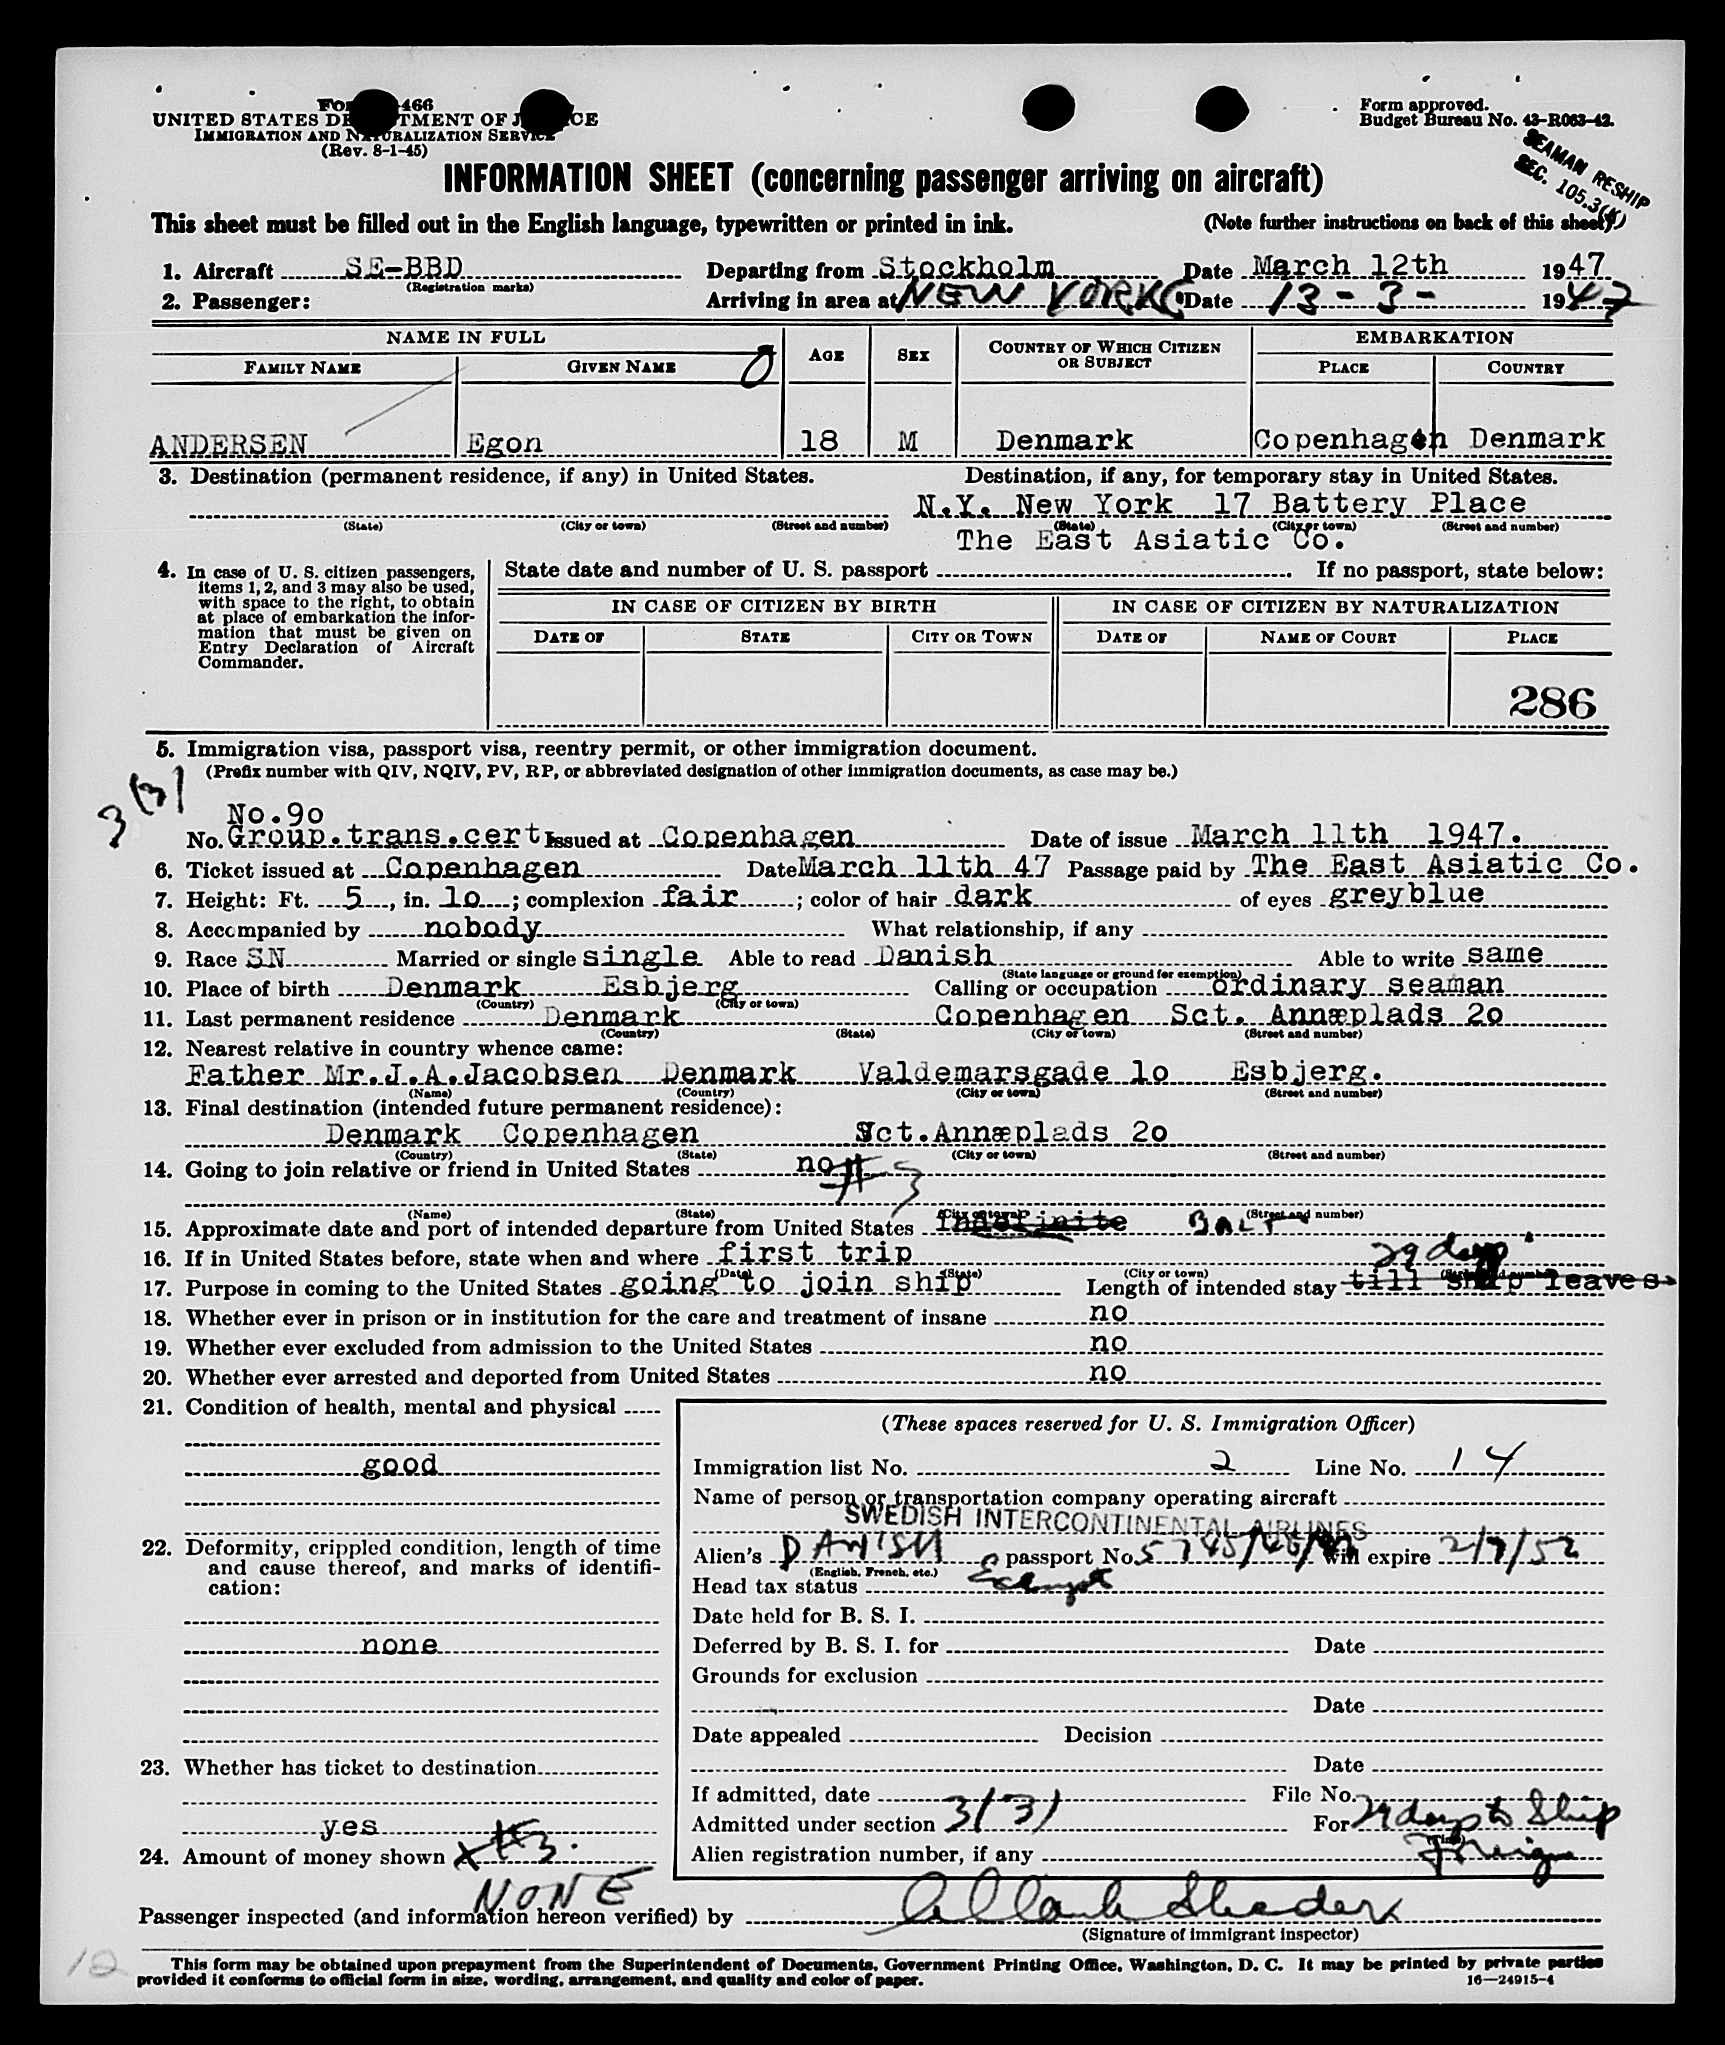 Form 466
UNITED STATES DEPARTMENT OF JUSTICE
IMMIGRATION AND NATURALIZATION SERVICE
(Rev. 8-1-45)
Form approved.
Budget Bureau No. 43-R063-42.
SEAMAN RESHIP
SEC. 105.3(K)
INFORMATION SHEET (concerning passenger arriving on aircraft)
This sheet must be filled out in the English language, typewritten or printed in ink. (Note further instructions on back of this sheet.)
1. Aircraft SE-BBD Departing from Stockholm Date March 12th 1947
(Registration marks)
2. Passenger: Arriving in area at NEW YORK Date 13-3- 1947
NAME IN FULL AGE SEX COUNTRY OF WHICH CITIZEN OR SUBJECT EMBARKATION
FAMILY NAME GIVEN NAME PLACE COUNTRY
ANDERSEN Egon 18 M Denmark Copenhagen Denmark
3. Destination (permanent residence, if any) in United States. Destination, if any, for temporary stay in United States.
N.Y. New York 17 Battery Place
(State) (City or town) (Street and number) (State) (City or town) (Street and number)
The East Asiatic Co.
4. In case of U. S. citizen passengers, items 1, 2, and 3 may also be used, with space to the right, to obtain at place of embarkation the information that must be given on Entry Declaration of Aircraft Commander.
State date and number of U. S. passport If no passport, state below:
IN CASE OF CITIZEN BY BIRTH IN CASE OF CITIZEN BY NATURALIZATION
DATE OF STATE CITY OR TOWN DATE OF NAME OF COURT PLACE
286
5. Immigration visa, passport visa, reentry permit, or other immigration document.
(Prefix number with QIV, NQIV, PV, RP, or abbreviated designation of other immigration documents, as case may be.)
3(3)
No.9o
No. Group.trans.cert Issued at Copenhagen Date of issue March 11th 1947.
6. Ticket issued at Copenhagen Date March 11th 47 Passage paid by The East Asiatic Co.
7. Height: Ft. 5, in. 1o; complexion fair; color of hair dark of eyes greyblue
8. Accompanied by nobody What relationship, if any
9. Race SN Married or single single Able to read Danish Able to write same
(State language or ground for exemption)
10. Place of birth Denmark Esbjerg Calling or occupation ordinary seaman
(Country) (City or town)
11. Last permanent residence Denmark Copenhagen Sct. Annæplads 2o
(Country) (State) (City or town) (Street and number)
12. Nearest relative in country whence came:
Father Mr.J.A.Jacobsen Denmark Valdemarsgade 1o Esbjerg.
(Name) (Country) (City or town) (Street and number)
13. Final destination (intended future permanent residence):
Denmark Copenhagen Sct.Annæplads 2o
(Country) (State) (City or town) (Street and number)
14. Going to join relative or friend in United States no # 3
(Name) (State) (City or town) (Street and number)
15. Approximate date and port of intended departure from United States Indefinite BALT
16. If in United States before, state when and where first trip
29 days
(Date) (State) (City or town) (Street and number)
17. Purpose in coming to the United States going to join ship Length of intended stay till ship leaves
18. Whether ever in prison or in institution for the care and treatment of insane no
19. Whether ever excluded from admission to the United States no
20. Whether ever arrested and deported from United States no
21. Condition of health, mental and physical
good
22. Deformity, crippled condition, length of time and cause thereof, and marks of identification:
none
23. Whether has ticket to destination
yes
24. Amount of money shown x #3.
NONE
(These spaces reserved for U. S. Immigration Officer)
Immigration list No. 2 Line No. 14
Name of person or transportation company operating aircraft
SWEDISH INTERCONTINENTAL AIRLINES
Alien's DANISH passport No. will expire 2/7/52
(English, French, etc.)
Head tax status Exempt
Date held for B. S. I.
Deferred by B. S. I. for Date
Grounds for exclusion
Date
Date appealed Decision
Date
If admitted, date File No.
Admitted under section 3(3) For 29 days to Ship
(Time)
Foreign
Alien registration number, if any
Passenger inspected (and information hereon verified) by
(Signature of immigrant inspector)
12
This form may be obtained upon prepayment from the Superintendent of Documents, Government Printing Office, Washington, D. C. It may be printed by private parties
provided it conforms to official form in size, wording, arrangement, and quality and color of paper. 16—24915-4